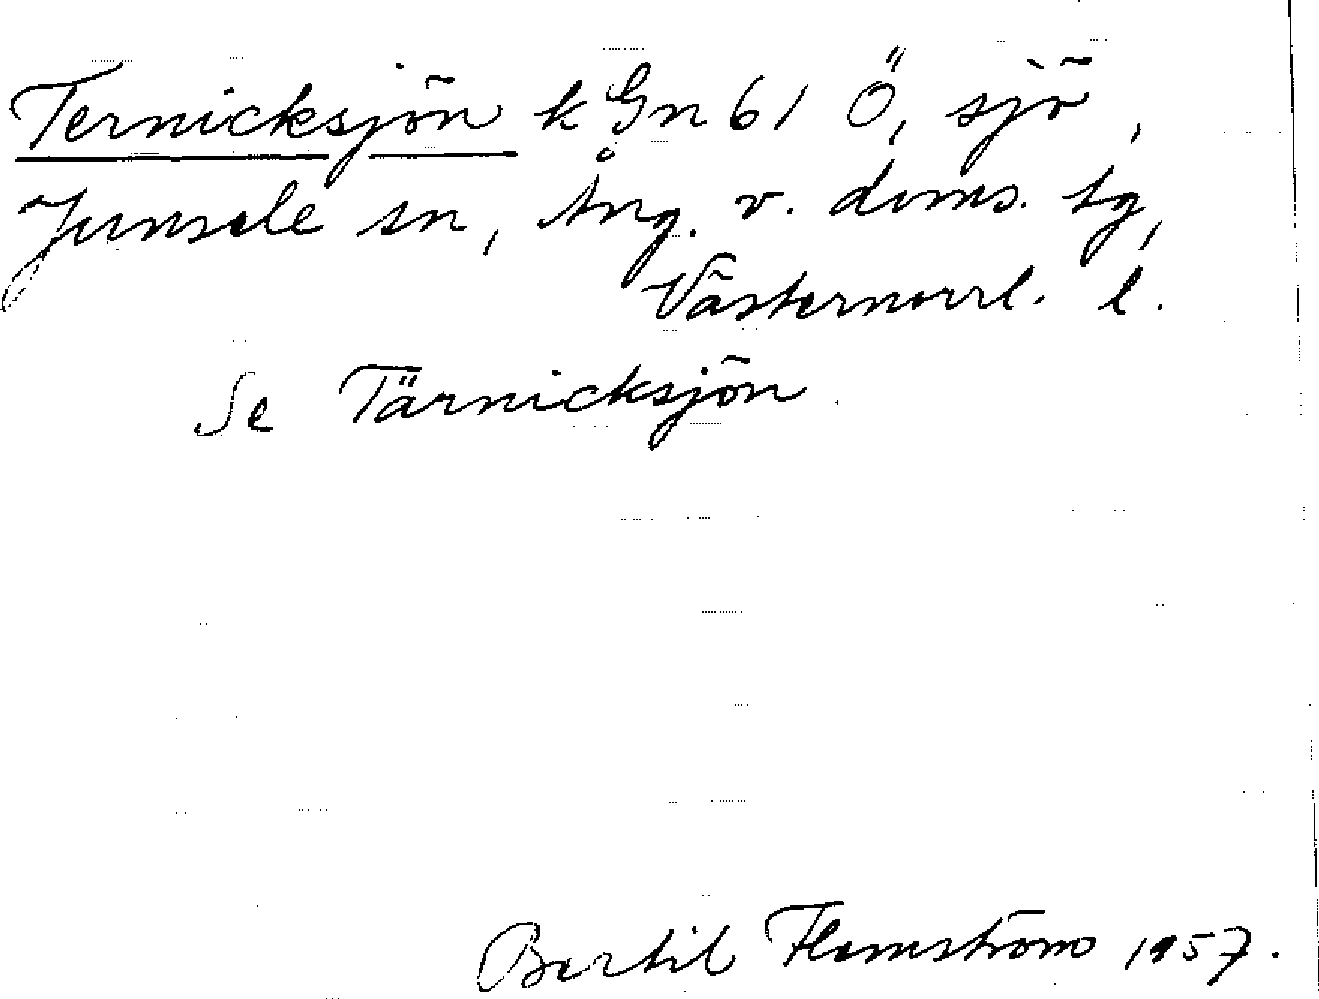 Ternicksjön k Gn 61 Ö, sjö,
Junsele sn, Ång. v. doms. tg,
Västernorrl. l.
Se Tärnicksjön
Bertil Flemström 1957.